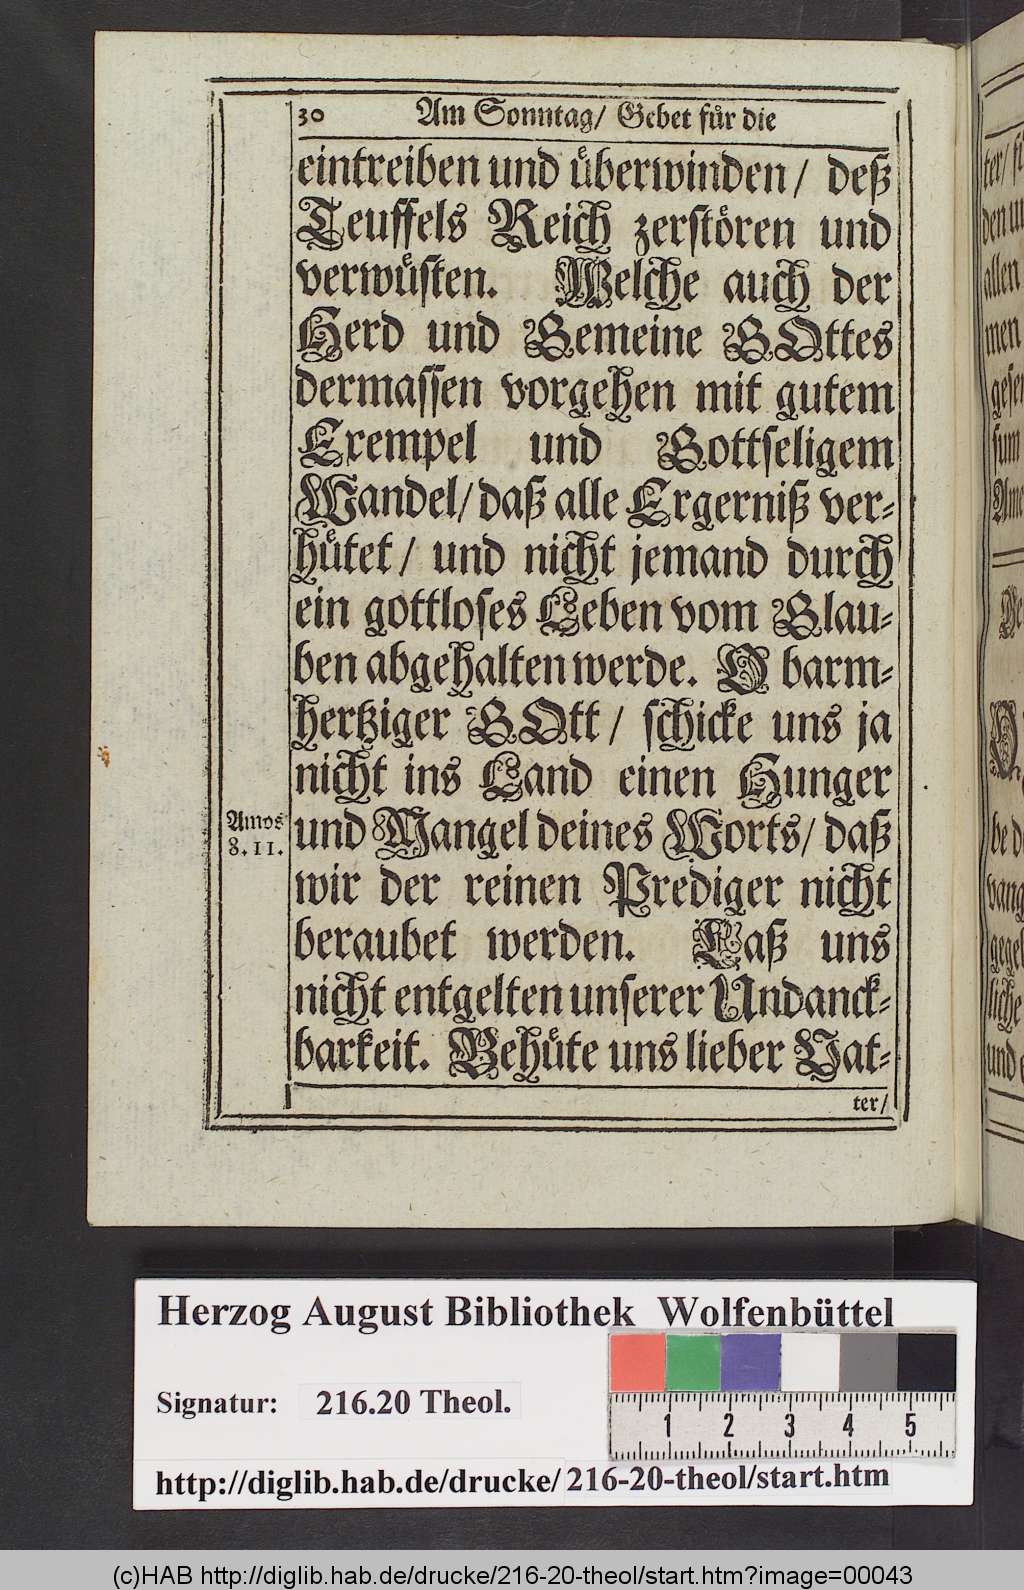 30 Am Sonntag/ Gebet fuͤr die
eintreiben und uͤberwinden/ deß
Teuffels Reich zerstoͤren und
verwuͤsten. Welche auch der
Herd und Gemeine GOttes
dermassen vorgehen mit gutem
Exempel und Gottseligem
Wandel/ daß alle Ergerniß ver-
huͤtet/ und nicht jemand durch
ein gottloses Leben vom Glau-
ben abgehalten werde. O barm-
hertziger GOtt/ schicke uns ja
nicht ins Land einen Hunger
Amos
8. 11.
und Mangel deines Worts/ daß
wir der reinen Prediger nicht
beraubet werden. Laß uns
nicht entgelten unserer Undanck-
barkeit. Behuͤte uns lieber Vat-
ter/
ter/
den
allen
men
be
liche
und
Herzog August Bibliothek Wolfenbüttel
Signatur: 216.20 Theol.
1 2 3 4 5
http://diglib.hab.de/drucke/216-20-theol/start.htm
(c)HAB http://diglib.hab.de/drucke/216-20-theol/start.htm?image=00043